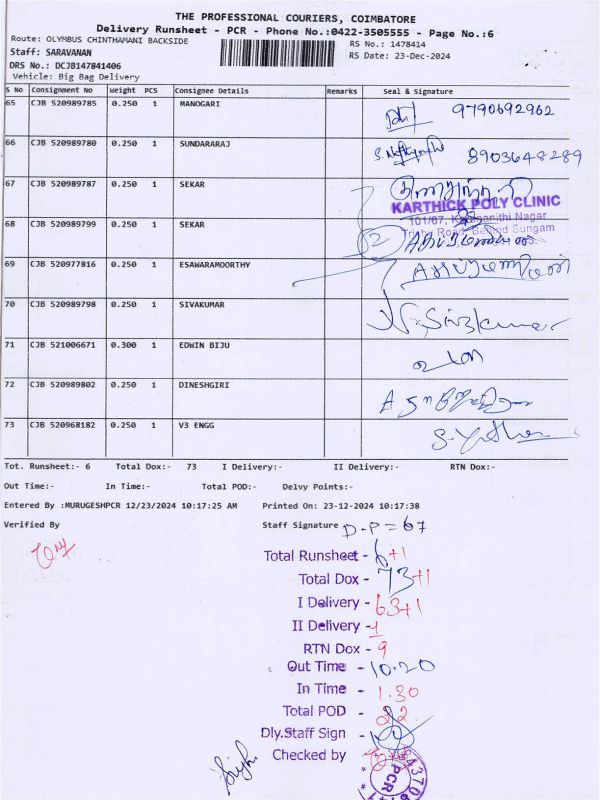 THE PROFESSIONAL COURIERS, COIMBATORE
Delivery Runsheet - PCR - Phone No.:0422-3505555 - Page No.:6
Route: OLYMBUS CHINTHAMANI BACKSIDE
RS No.: 1478414
Staff: SARAVANAN
RS Date: 23-Dec-2024
DRS No.: DCJB147841406
Vehicle: Big Bag Delivery
S No Consignment No Weight PCS Consignee Details Remarks Seal & Signature
65 CJB 520989785 0.250 1 MANOGARI 9790692962
66 CJB 520989780 0.250 1 SUNDARARAJ 8903648289
67 CJB 520989787 0.250 1 SEKAR
KARTHICK POLY CLINIC
101/67, Karunanithi Nagar
68 CJB 520989799 0.250 1 SEKAR
Trichy Road, Behind Sungam
69 CJB 520977816 0.250 1 ESAWARAMOORTHY
70 CJB 520989798 0.250 1 SIVAKUMAR N. Sivakumar
71 CJB 521006671 0.300 1 EDWIN BIJU
72 CJB 520989802 0.250 1 DINESHGIRI
73 CJB 520968182 0.250 1 V3 ENGG
Tot. Runsheet:- 6 Total Dox:- 73 I Delivery:- II Delivery:- RTN Dox:-
Out Time:- In Time:- Total POD:- Delvy Points:-
Entered By :MURUGESHPCR 12/23/2024 10:17:25 AM Printed On: 23-12-2024 10:17:38
Verified By Staff Signature D.P = 67
Total Runsheet - 6+1
Total Dox - 73+1
I Delivery - 63+1
II Delivery - 1
RTN Dox - 9
Out Time - 10.20
In Time - 1.30
Total POD -
Dly.Staff Sign -
Checked by
PCR